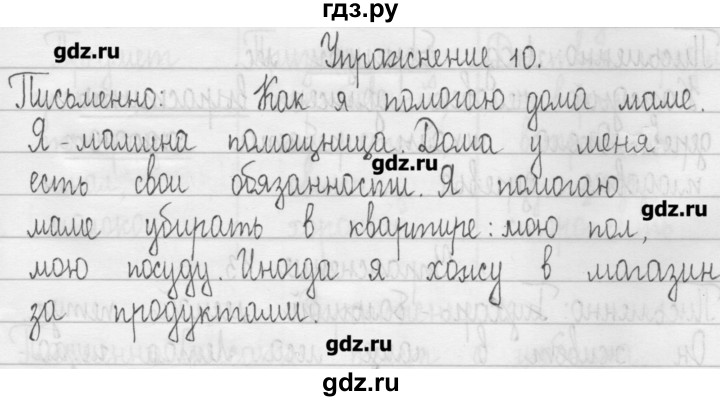 гдз.ру
gdz.ru
Упражнение 10.
Письменно: Как я помогаю дома маме.
Я - мамина помощница. Дома у меня
gdz.ru
есть свои обязанности. Я помогаю
gdz.ru
маме убирать в квартире: мою пол,
мою посуду. Иногда я хожу в магазин
за продуктами.
gdz.ru
gdz.ru